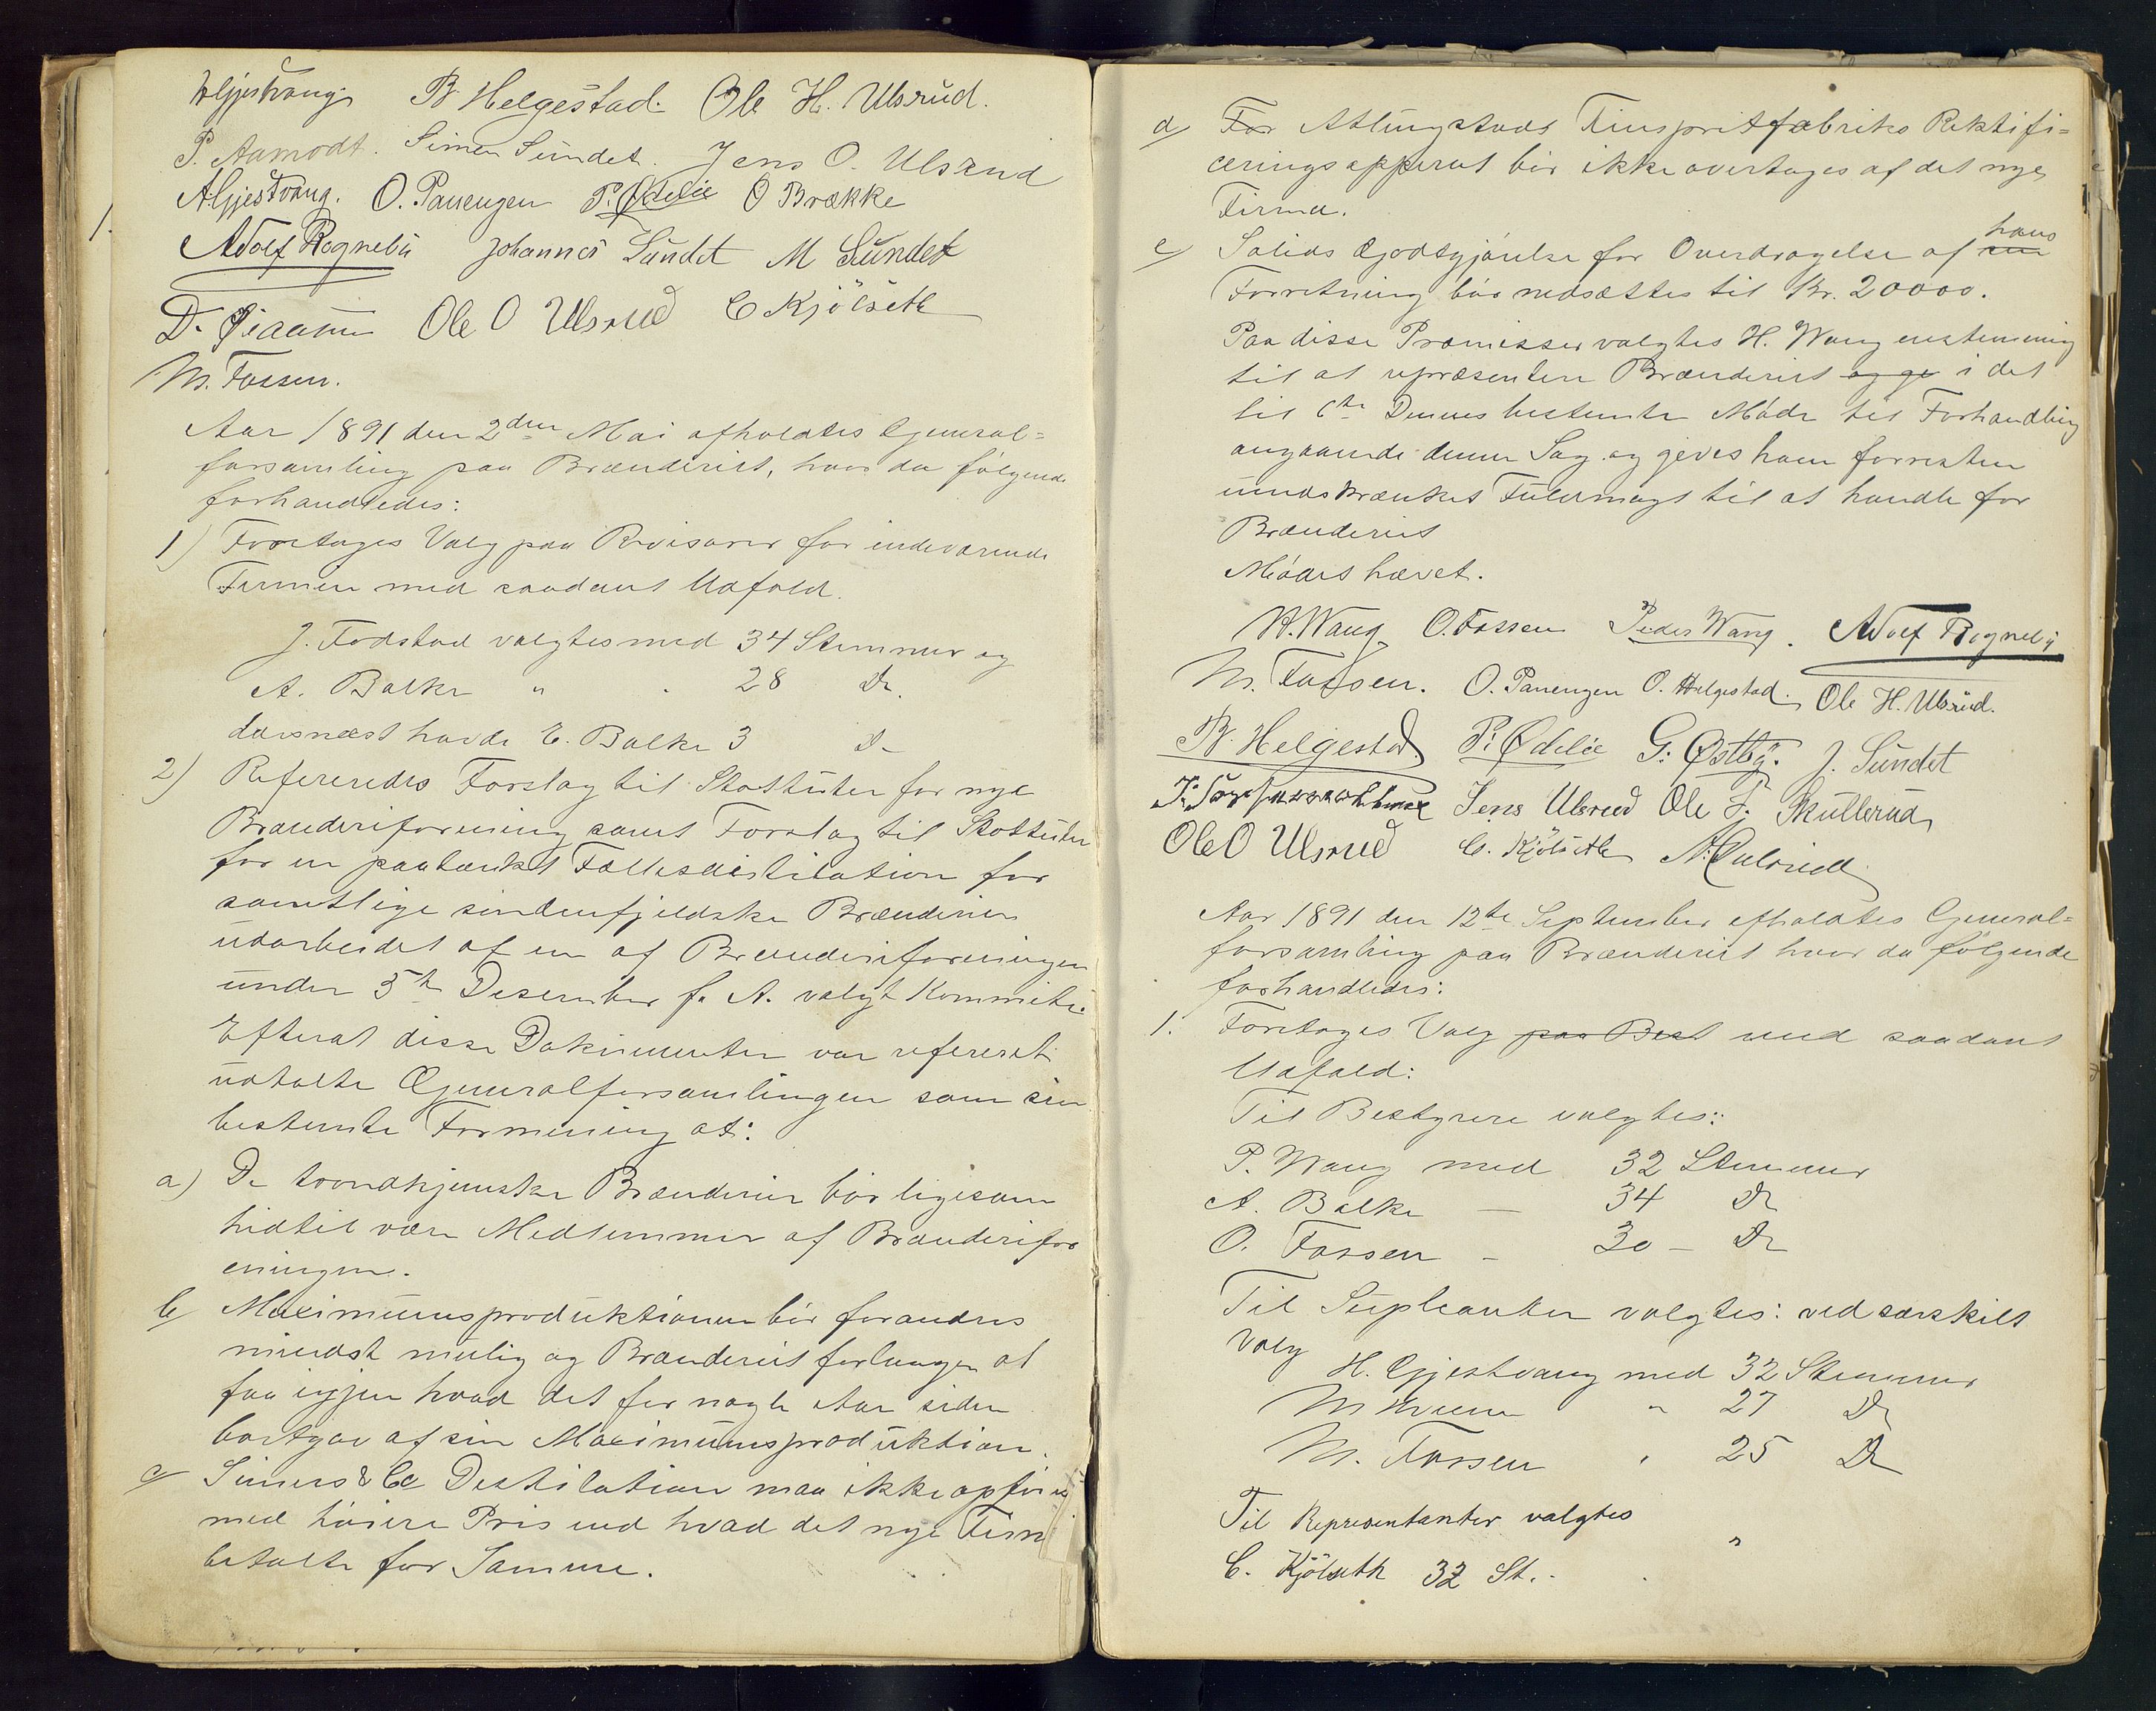 H Gjestvang B. Helgestad. Ole H. Ulsrud.
P. Aamodt. Simen Sundet. Jens O. Ulsrud
A. Gjestvang. O. Panengen P. Ødelie O Brække
1.
Adolf Rognebÿ Johannes Sundet M Sundet
D. Ole O Ulsrud C Kjölseth
M. Fossen.
Aar 1891 den 2den Mai afholdtes General=
forsamling paa Brænderiet, hvor da følgende
forhandledes:
1) Foretages Valg paa Revisorer for indeværende
Termin med saadant Udfald.
J. Fodstad valgtes med 34 Stemmer og
A. Balke " . 28 Do.
dernæst havde E. Balke 3 Do
2) Refereredes Forslag til Statuter for nye
Brænderiforening samt Forslag til Statuter
for en paatænkt Fællesdestilation for
samtlige søndenfjeldske Brænderier
udarbeidet af en af Brænderiforeningen
under 5te Desember f. A. valgt Kommite.
Efterat disse Dokumenter var refereret
udtalte Generalforsamlingen som sin
bestemte Formening at:
a) De trondhjemske Brænderier bör ligesom
hidtil være Medlemmer af Brænderifor
eningen.
b/ Maximumsproduktionen bör forandres
mindst mulig og Brænderiet forlanger at
faa igjen hvad det for nogle Aar siden
bortgav af sin Maximumsproduktion.
c/ Simers & Co Destilation maa ikke opföres
med höiere Pris end hvad det nye Firma
betalte for Samme.
d/ For Atlungstads Finspritfabriks Rektifi=
ceringsapparat bör ikke overtages af det nye
Firma.
hans
e/ Solids Godtgjörelse for Overdragelse af sin
Forretning bör nedsættes til Kr. 20000.
Paa disse Præmisser valgtes H. Wang enstemmig
til at repræsentere Brænderiet og ge i det
til 6te Dennes bestemte Möde til Forhandling
angaaende denne Sag og gives ham forresten
uindskrænket Fuldmagt til at handle for
Brænderiet
Mödet hævet.
H. Wang O. Fossen Peder Wang. Adolf Rognebÿ
M. Fossen. O. Panengen O. Helgestad. Ole H. Ulsrud.
B. Helgestad P. Ødelie G. Østbÿ. J. Sundet
Jens Ulsrud Ole T. Skullerud
Ole O Ulsrud C. Kjölseth
Aar 1891 den 12te September afholdtes General=
forsamling paa Brænderiet hvor da følgende
forhandledes:
1. Foretages Valg paa Best med saadant
Udfald:
Til Bestyrere valgtes:
P. Wang med 32 Stemmer
A. Balke — 34 Do
O. Fossen - 30 — Do
Til Supleanter valgtes: ved særskilt
Valg
H. Gjestvang med 32 Stemmer
M " 27 Do
M. Fossen " 25 Do
Til Representanter valgtes
C. Kjölseth 32 St. "